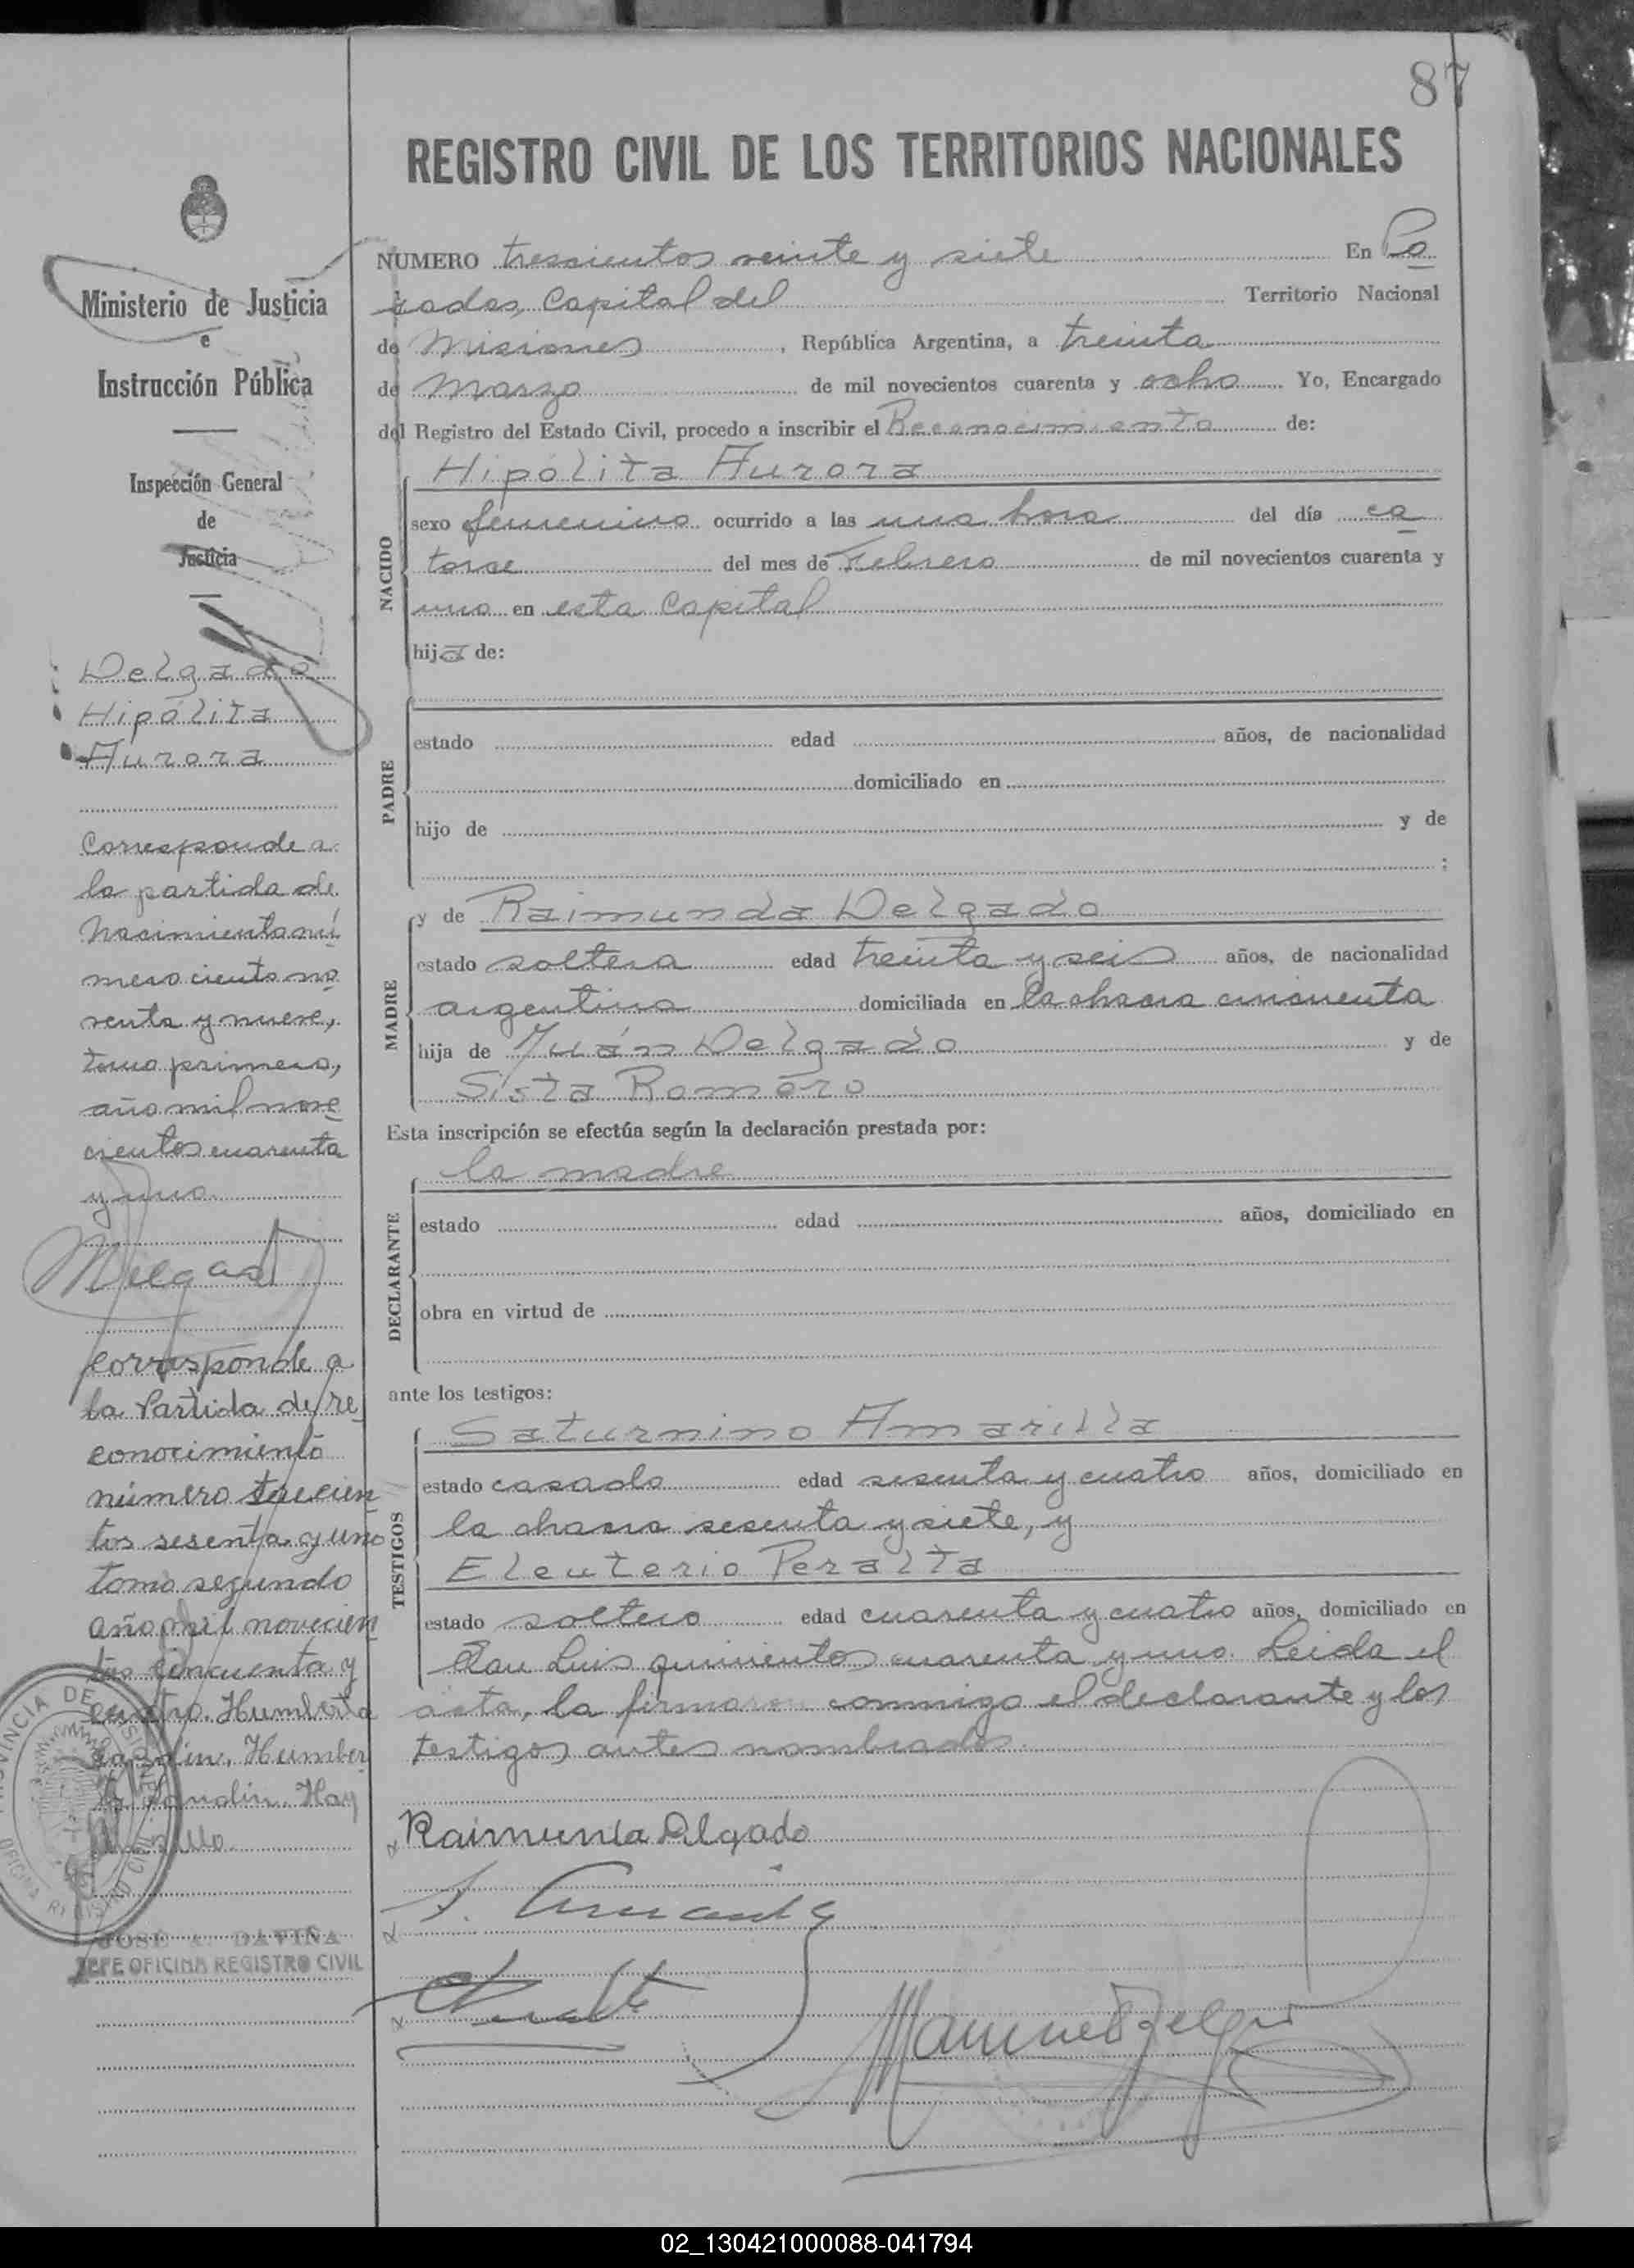 87
REGISTRO CIVIL DE LOS TERRITORIOS NACIONALES
Ministerio de Justicia
e
Instrucción Pública
Inspección General
de
Justicia
Delgado
Hipólita
Aurora
Corresponde a
la partida de
Nacimiento nú
mero ciento no
venta y nueve,
tomo primero,
año mil nove
cientos cuarenta
y uno.
Corresponde a
la Partida de re
conocimiento
número trecien
tos sesenta y uno
tomo segundo
año mil novecien
tos cincuenta y
cuatro. Humberto
Humber
Hay
JOSE A. DAVIÑA
JEFE OFICINA REGISTRO CIVIL
NUMERO trescientos veinte y siete En Po
sadas, Capital del Territorio Nacional
de Misiones, República Argentina, a treinta
de Marzo de mil novecientos cuarenta y ocho Yo, Encargado
del Registro del Estado Civil, procedo a inscribir el Reconocimiento de:
NACIDO
Hipólita Aurora
sexo femenino ocurrido a las una hora del día ca
torse del mes de Febrero de mil novecientos cuarenta y
uno en esta Capital
hija de:
PADRE
estado edad años, de nacionalidad
domiciliado en
hijo de y de
;
MADRE
y de Raimunda Delgado
estado soltera edad treinta y seis años, de nacionalidad
argentina domiciliada en la chacra cincuenta
hija de Juán Delgado y de
Sista Romero
Esta inscripción se efectúa según la declaración prestada por:
DECLARANTE
la madre
estado edad años, domiciliado en
obra en virtud de
ante los testigos:
TESTIGOS
Saturnino Amarilla
estado casado edad sesenta y cuatro años, domiciliado en
la chacra sesenta y siete, y
Eleuterio Peralta
estado soltero edad cuarenta y cuatro años, domiciliado en
San Luis quinientos cuarenta y uno. Leida el
acta, la firmaron conmigo el declarante y los
testigos antes nombrados.
Raimunda Delgado
02_130421000088-041794